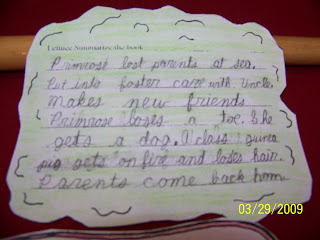 Lettuce Summarize the book
Primrose lost parents at sea.
Put into foster care with Uncle.
Makes new friends
Primrose loses a toe. She
gets a dog. A class guinea
pig gets on fire and loses hair.
Parents come back home
03/29/2009